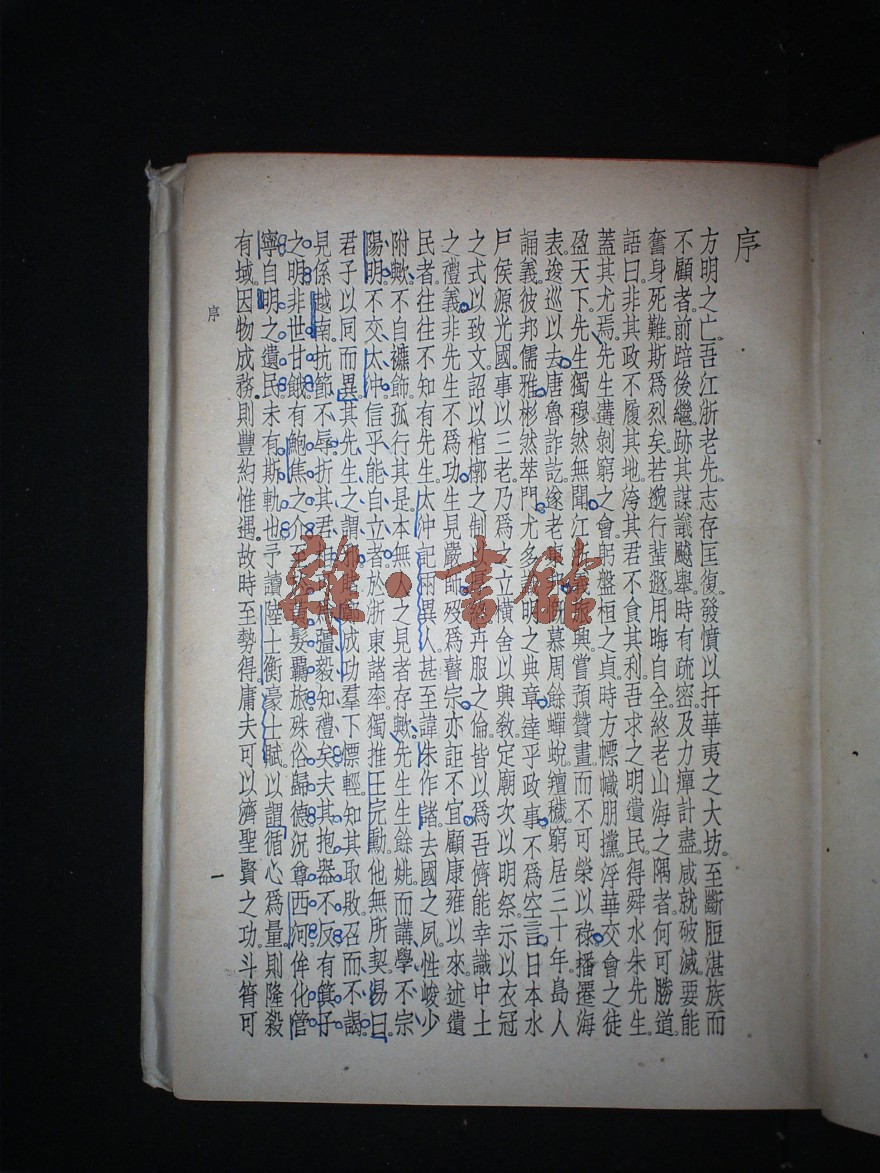 序
方明之亡。吾江浙老先。志存匡復。發憤以扞華夷之大坊。至斷脰湛族而
不顧者。前踣後繼。跡其謀議飈舉。時有疏密。及力癉計盡。咸就破滅。要能
奮身死難。斯爲烈矣。若遯行蜚遯。用晦自全。終老山海之隅者。何可勝道。
語曰。非其政不履其地。洿其君不食其利。吾求之明遺民。得舜水朱先生。
蓋其尤焉。先生遘剝窮之會。躬盤桓之貞。時方幖幟朋攩。浮華交會之徒
盈天下。先生獨穆然無聞。江 旅興。嘗預贊畫。而不可榮以祿。播遷海
表。逡巡以去。唐魯詐訖。遂老 慕周餘。蟬蛻羶穢。窮居三十年。島人
誦義。彼邦儒雅。彬然萃門。尤多 明之典章。達乎政事。不爲空言。日本水
戶侯源光國。事以三老。乃爲之立橫舍以興敎。定廟次以明祭。示以衣冠
之式以致文。詔以棺槨之制 卉服之倫。皆以爲吾儕能幸識中土
之禮義。非先生不爲功。生見嚴師。歿爲瞽宗。亦詎不宜。顧康雍以來。述遺
民者。往往不知有先生。太沖記兩異人。甚至諱朱作諸。去國之夙。性峻少
附歟。不自襜飾。孤行其是。本無人之見者存歟。先生生餘姚。而講學不宗
陽明。不交太沖。信乎能自立者。於浙東諸率。獨推王完勳。他無所契。易曰。
君子以同而異。其先生之謂 成功羣下慓輕。知其取敗。召而不謁。
見係越南。抗節不辱。折其君相 彊毅知禮矣。夫其抱器不反。有箕子
之明。非世甘餓。有鮑焦之介。至 髮羈旅。殊俗歸德。況尊西河。侔化管
寧。自明之遺民。未有斯軌也。予讀陸士衡豪士賦。以謂循心爲量。則隆殺
有域。因物成務。則豐約惟遇。故時至勢得。庸夫可以濟聖賢之功。斗筲可
序
一
雜·書館